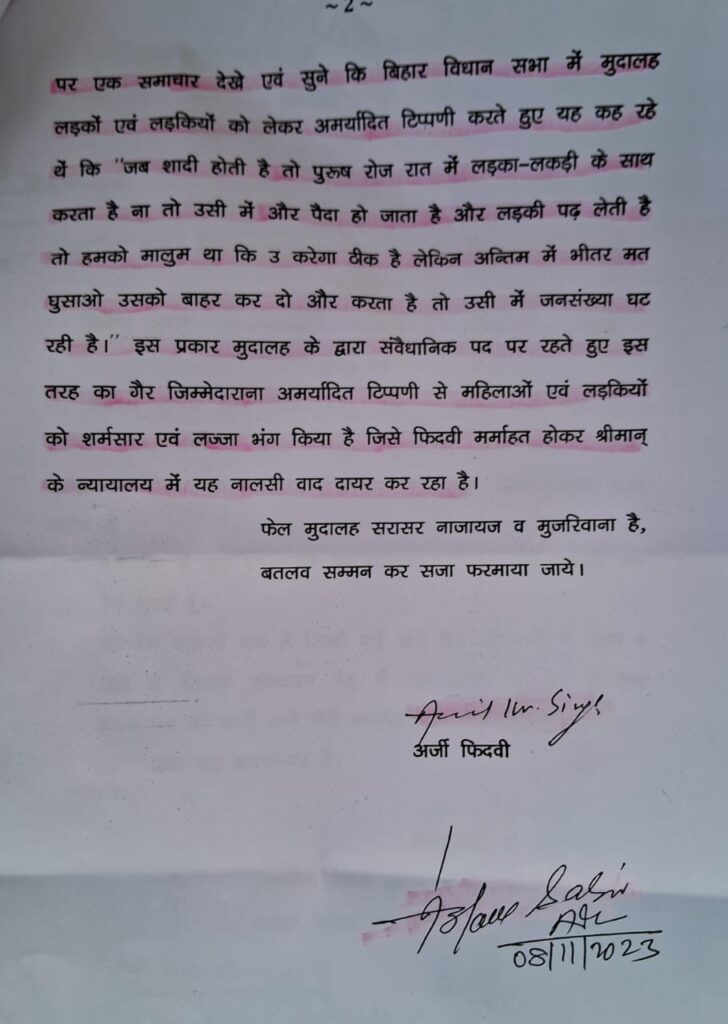 ~ 2 ~
पर एक समाचार देखे एवं सुने कि बिहार विधान सभा में मुदालह
लड़कों एवं लड़कियों को लेकर अमर्यादित टिप्पणी करते हुए यह कह रहे
थें कि "जब शादी होती है तो पुरूष रोज रात में लड़का-लकड़ी के साथ
करता है ना तो उसी में और पैदा हो जाता है और लड़की पढ़ लेती है
तो हमको मालुम था कि उ करेगा ठीक है लेकिन अन्तिम में भीतर मत
घुसाओ उसको बाहर कर दो और करता है तो उसी में जनसंख्या घट
रही है।" इस प्रकार मुदालह के द्वारा संवैधानिक पद पर रहते हुए इस
तरह का गैर जिम्मेदाराना अमर्यादित टिप्पणी से महिलाओं एवं लड़कियों
को शर्मसार एवं लज्जा भंग किया है जिसे फिदवी मर्माहत होकर श्रीमान्
के न्यायालय में यह नालसी वाद दायर कर रहा है।
फेल मुदालह सरासर नाजायज व मुजरिवाना है,
बतलव सम्मन कर सजा फरमाया जाये।
Kr. Singh
अर्जी फिदवी
Sabir
08/11/2023